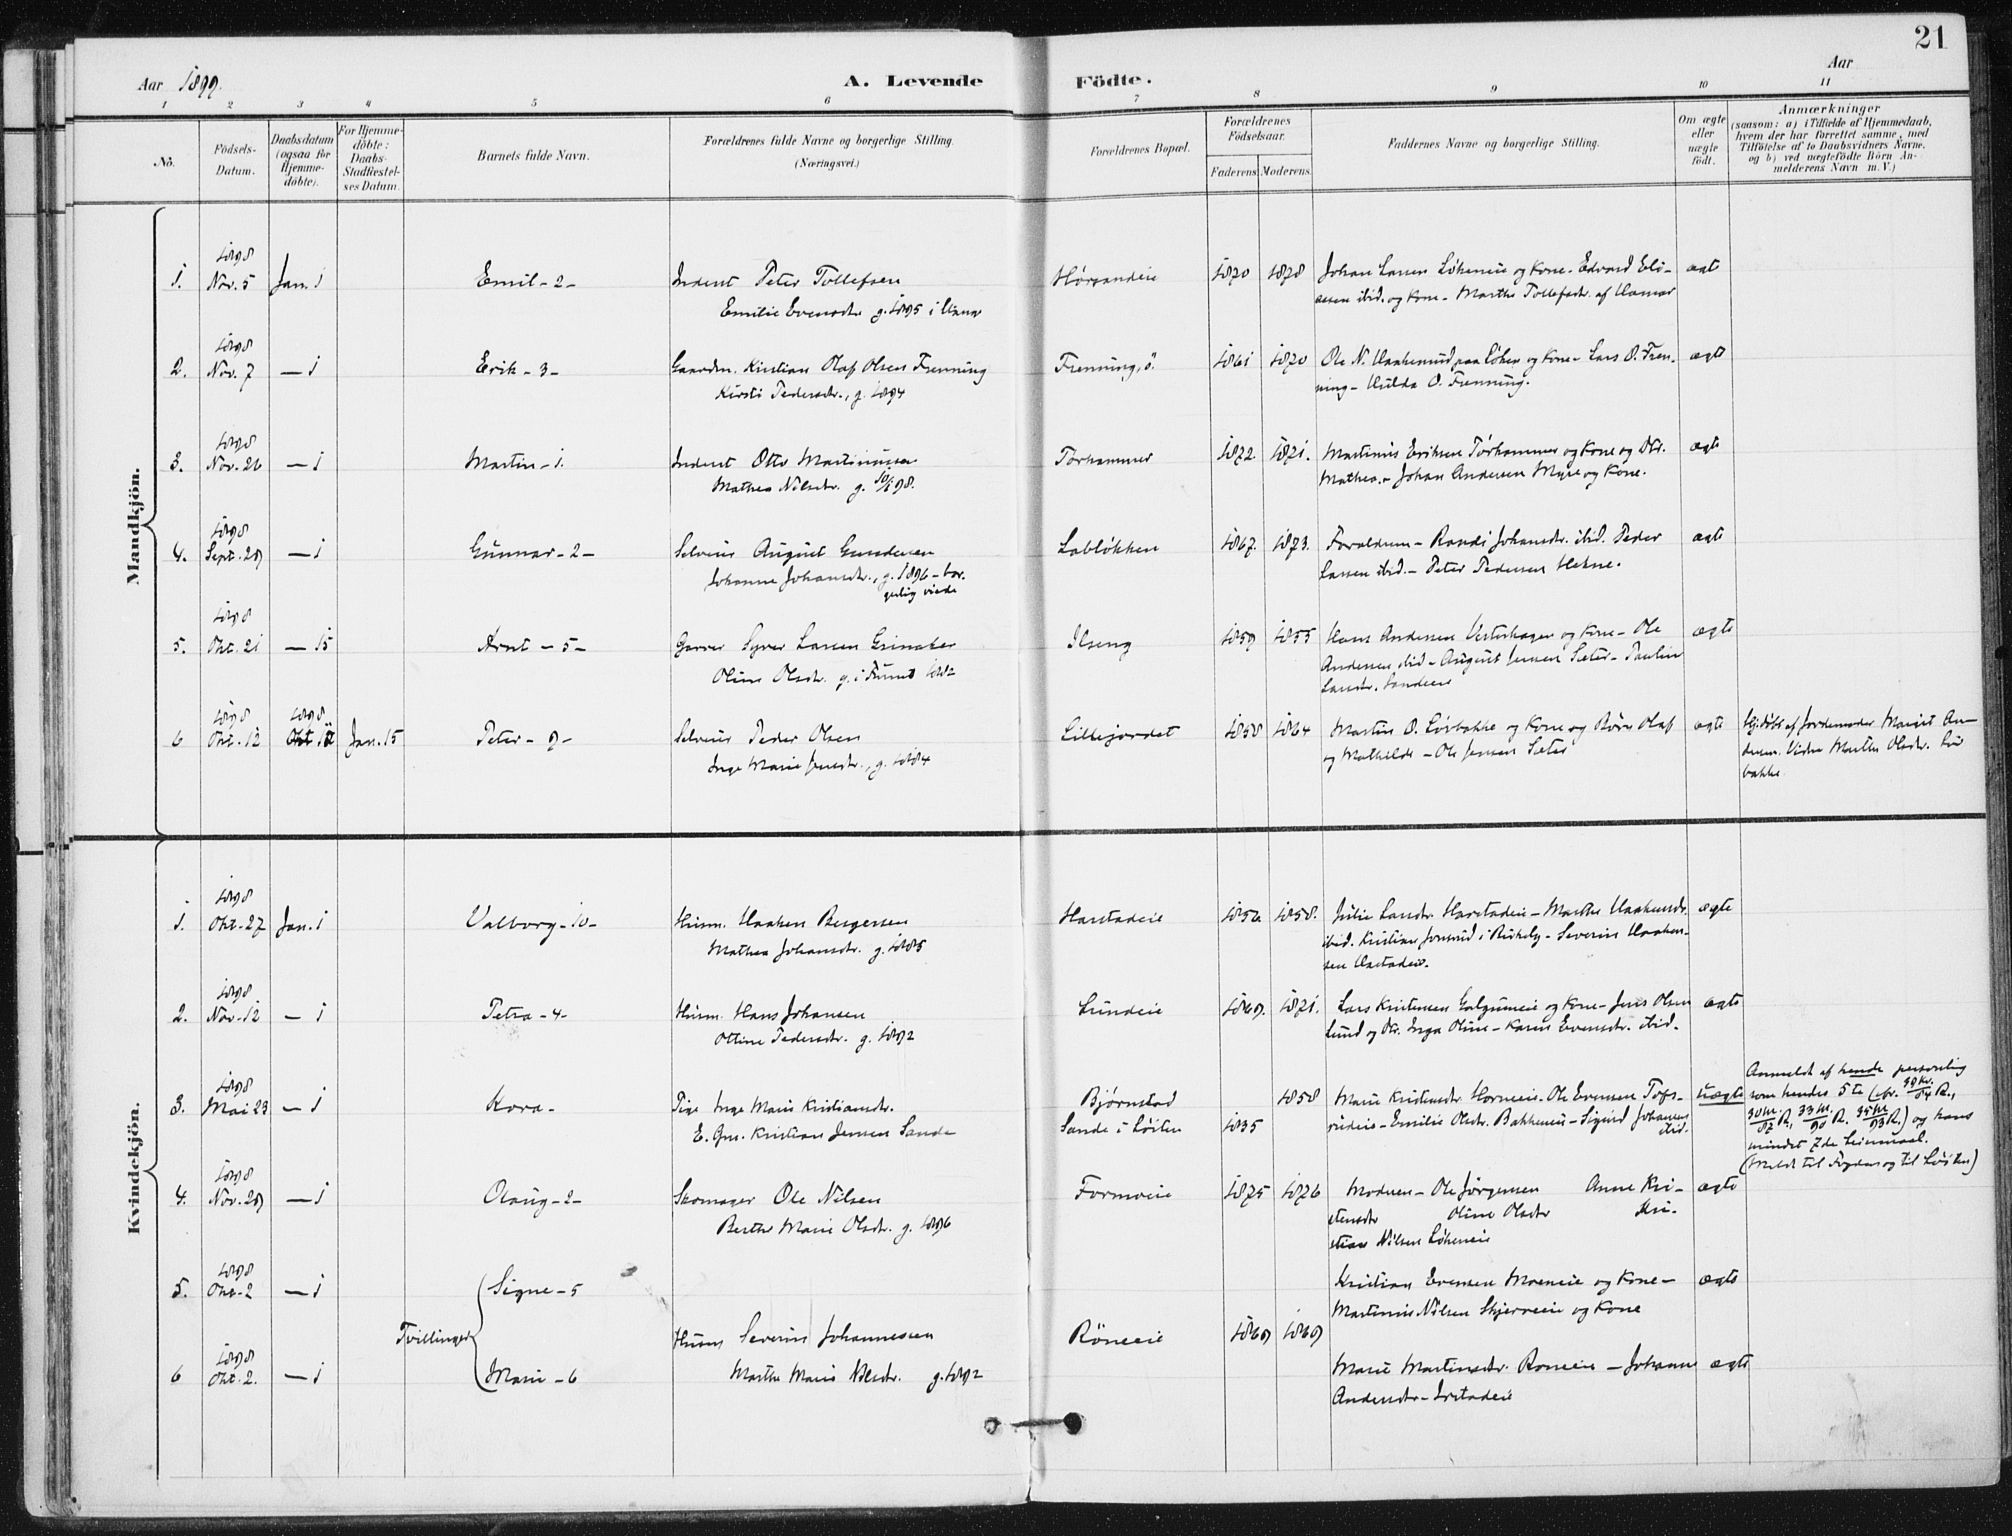 21
Aar 1899.
A. Levende Födte.
Aar
1 2 3 4 5 6 7 8 9 10 11
No.
Födsels-Datum.
Daabsdatum (ogsaa for Hjemme-döbte).
For Hjemme-döbte: Daabs-Stadfæstel-ses Datum.
Barnets fulde Navn.
Forældrenes fulde Navne og borgerlige Stilling.
(Næringsvei.)
Forældrenes Bopæl.
Forældrenes Födselsaar.
Faderens. Moderens.
Faddernes Navne og borgerlige Stilling.
Om ægte eller uægte födt.
Anmærkninger
(saasom: a) i Tilfælde af Hjemmedaab,
hvem der har forrettet samme, med
Tilföielse af to Daabsvidners Navne,
og b) ved uægtefödte Börn An-
melderens Navn m. V.)
Mandkjön.
1. 1898 Nov. 5 Jan. 1 Emil - 2 - Inderst Peter Tollefsen
Emilie Evensdtr. g. 1895 i Vang
Hørsandeie 1870 1878 Johan Larsen Løkeneie og Kone - Edvard Eli-
assen ibid. og Kone - Marthe Tollefsdtr. af Hamar
ægt
2. 1898 Nov. 7 — 1 Erik - 3 - Gaardm. Kristian Olaf Olsen Frenning
Kirsti Pedersdtr., g. 1894
Frenning, ö. 1861 1870 Ole N. Haakenrud paa Løken og Kone - Lars O. Fren-
ning - Hulda O. Frenning.
ægt
3. 1898 Nov. 26 — 1 Martin - 1. Inderst Otto Martinussen
Mathea Nilsdtr. g. 98.
Torhammer 1872 1871. Martinus Eriksen Torhammer og Kone og Dtr.
Mathea. - Johan Andersen Myre og Kone.
ægt
4. 1898 Sept. 29 — 1 Gunnar - 2 - Selveier August Gundersen
Johanne Johansdtr., g. 1896 - bor-
gerlig viede
Labløkken 1867. 1873. Forældrene - Randi Johansdtr. ibid. Peder
Larsen ibid. - Peter Pedersen Hekne.
ægt
5. 1898 Okt. 21 — 15 Arnt - 5 - Garver Syver Larsen Grinaker
Oline Olsdtr. g. i Furnes 1882
Ilseng 1859 1855 Hans Andersen Vesterhagen og Kone - Ole
Andersen ibid - August Jensen Sæter - Pauline
Larsdtr. Sandeie
ægte
6 1898 Okt. 12 1898 Okt 12 Jan. 15 Peter - 9 - Selveier Peder Olsen
Inge Marie Jensdtr., g. 1884
Lillejordet 1858 1864 Martin O. Lövbakke og Kone og Børn Olaf
og Mathilde - Ole Jensen Sæter
ægte
Hj.døbt af Jordemoder Margit An-
dersen. Vidne Marthe Olsdtr. Löv
bakke.
Kvindekjön.
1. 1898 Okt. 27 Jan. 1 Valborg - 10 - Husm. Haaken Bergersen
Mathea Johansdtr. g. 1885
Harstadeie 1856 1858. Julie Larsdtr. Harstadeie - Marthe Haakensdtr.
ibid. Kristian Jonsrud i Birkely - Severin Haaken-
sen Harstadeie.
ægte
2. 1898 Nov. 12 — 1 Petra - 4 - Husm. Hans Johansen
Ottine Pedersdtr. g. 1892
Lundeie 1869. 1871. Lars Kristensen Galgumeie og Kone - Jens Olsen
Lund og Dtr. Inga Oline - Karen Evensdtr. ibid.
ægte
3. 1898 Mai 23 — 1 Kora - Pige Inge Marie Kristiansdtr.
E. Gm. Kristian Jensen Sande
Bjørnstad
Sande i Løiten 1835 1858 Marie Kristiansdtr. Horneeie - Ole Evensen Tofs-
rudeie - Emilie Olsdtr. Bakkeneie - Sigurd Johansen
ibid.
uægte
Anmeldt af hende personlig
som hendes 5te og hans
mindst 7de Leiermaal.
(Meldt til Fogden og til Løiten)
4. 1898 Nov. 29 — 1 Olaug - 2 - Skomager Ole Nilsen
Berthe Marie Olsdtr. g. 1896
Formoeie 1875 1876 Moderen - Ole Jørgensen Anne Kri-
stensdtr Oline Olsdtr Kri-
stian Nilsen Løkeneie
ægte
5. 1898 Okt. 2 — 1 Signe - 5
Tvillinger
Kristian Evensen Moeneie og Kone -
Martinus Nilsen Skjerveeie og Kone
ægte
Husm Severin Johannessen
Marthe Marie Nilsdtr. g. 1892
Röneeie 1869 1869
6 1898 Okt. 2. — 1 Marie - 6
Marie Martinsdtr. Röneeie - Johanne
Andersdtr - Irstadeie
ægte